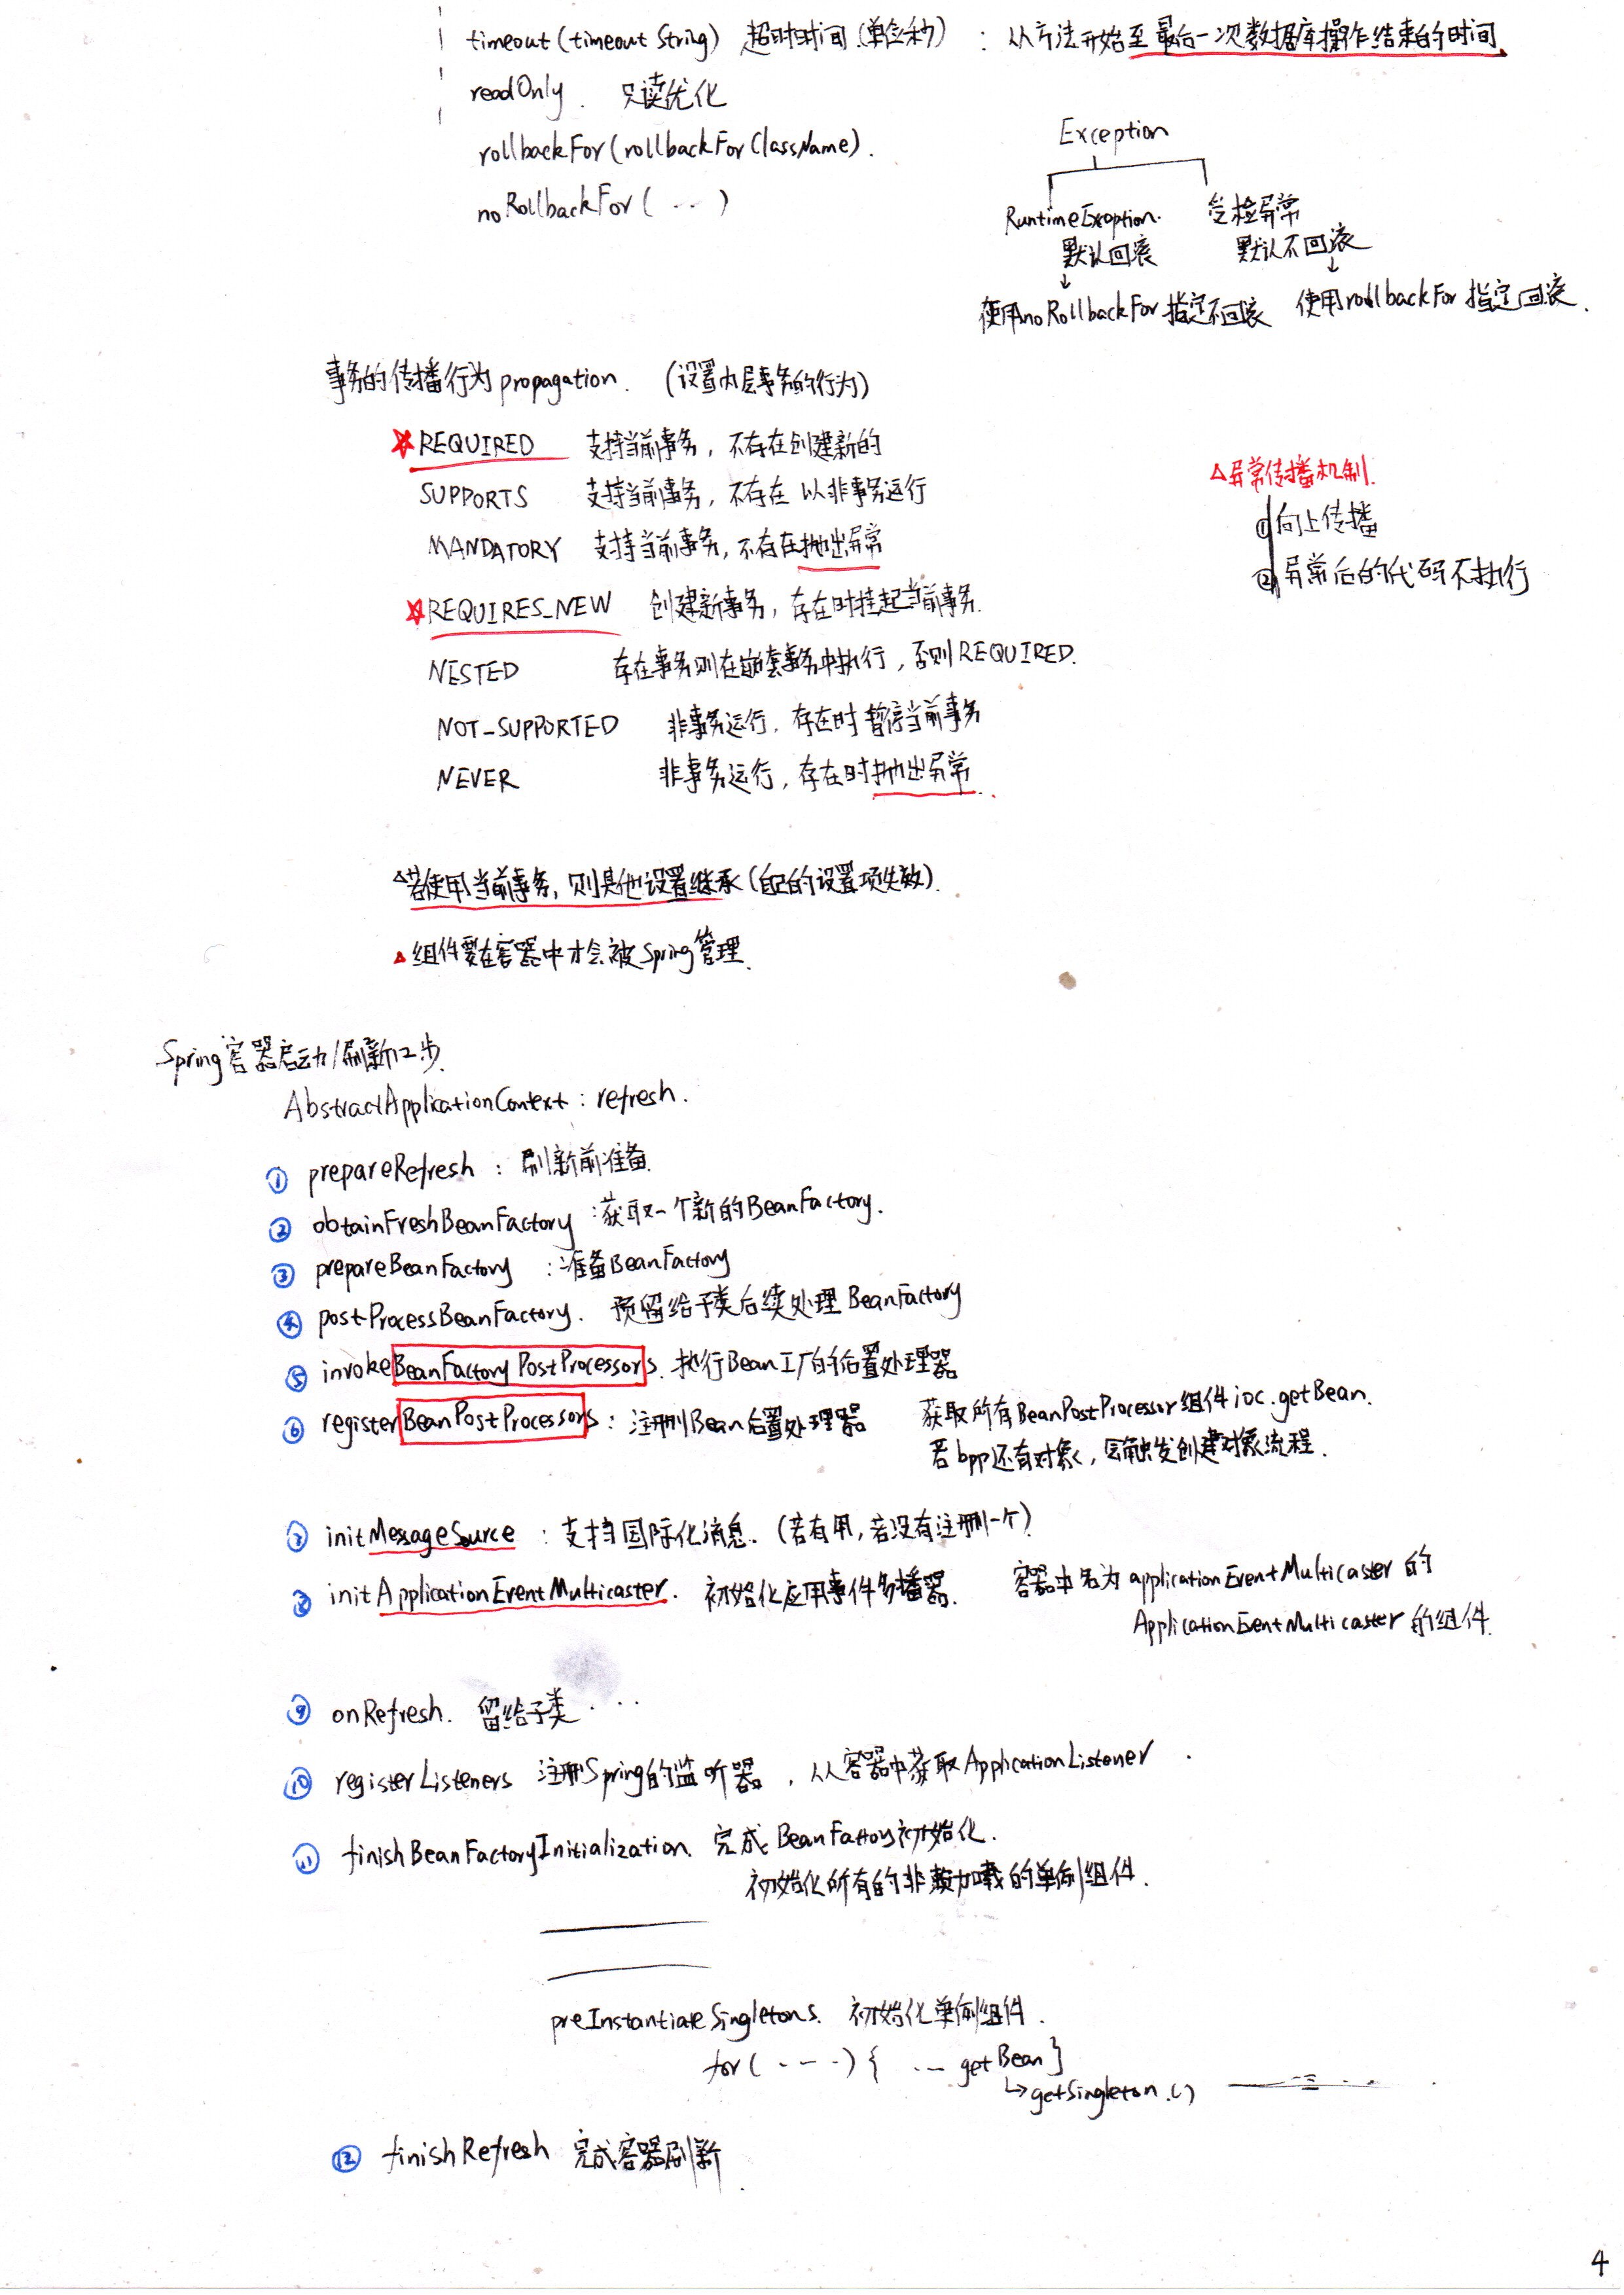 timeout(timeout String) 超时时间(单位秒) : 从方法开始至最后一次数据库操作结束的时间.
readOnly. 只读优化
rollbackFor(rollbackForClassName).
noRollbackFor( ... )
Exception
RuntimeException. 受检异常
默认回滚 默认不回滚
↓ ↓
使用noRollbackFor指定不回滚 使用rollbackFor指定回滚.
事务的传播行为propagation. (设置内层事务的行为)
☆REQUIRED 支持当前事务, 不存在创建新的
SUPPORTS 支持当前事务, 不存在 以非事务运行
MANDATORY 支持当前事务, 不存在抛出异常
☆REQUIRES_NEW 创建新事务, 存在时挂起当前事务.
NESTED 存在事务则在嵌套事务中执行, 否则REQUIRED.
NOT_SUPPORTED 非事务运行, 存在时暂停当前事务
NEVER 非事务运行, 存在时抛出异常.
△异常传播机制.
①向上传播
②异常后的代码不执行
△若使用当前事务, 则其他设置继承(自己的设置项失效).
△组件要在容器中才会被Spring管理.
Spring容器启动/刷新12步.
AbstractApplicationContext: refresh.
① prepareRefresh : 刷新前准备.
② obtainFreshBeanFactory :获取一个新的BeanFactory.
③ prepareBeanFactory :准备BeanFactory
④ postProcessBeanFactory. 预留给子类后续处理BeanFactory
⑤ invokeBeanFactoryPostProcessors. 执行Bean工厂的后置处理器
⑥ registerBeanPostProcessors: 注册Bean后置处理器 获取所有BeanPostProcessor组件ioc.getBean.
若bpp还有对象, 会触发创建对象流程.
⑦ initMessageSource : 支持国际化消息. (若有用, 若没有注册一个)
⑧ initApplicationEventMulticaster. 初始化应用事件多播器. 容器中名为applicationEventMulticaster的
ApplicationEventMulticaster的组件.
⑨ onRefresh. 留给子类...
⑩ registerListeners 注册Spring的监听器, 从容器中获取ApplicationListener.
⑪ finishBeanFactoryInitialization. 完成BeanFactory初始化.
初始化所有的非懒加载的单例组件.
preInstantiateSingletons. 初始化单例组件.
for( ---- ) { ... getBean }
↳getSingleton.()
⑫ finishRefresh 完成容器刷新.
4